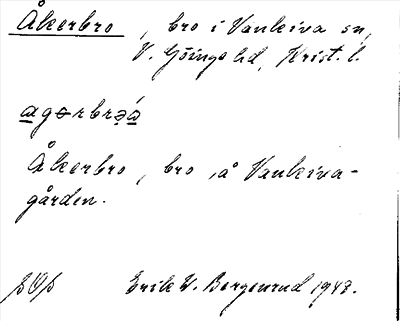 Åkerbro, bro i Vankiva sn,
V. Göinge hd, Krist. l.
agərbrə́a
Åkerbro, bro å Vankiva-
gården.
Erik W. Bergenrud 1943.